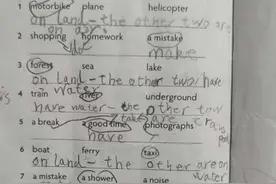 1 motorbike plane helicopter
on land - the other two are
on air
2 shopping homework a mistake
make
3 forest sea lake
on land - the other two have
water
4 train river underground
have water - the other tow
are train
5 a break a good time photographs
take
have
6 boat ferry taxi
on land - the other are on
water
7 a mistake a shower a noise